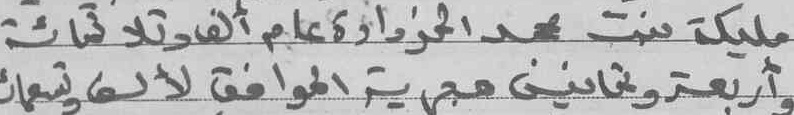 مليكة بنت محمد المزدادة عام ألف وثلاثمائة
وأربعة وثمانين هجرية الموافق لألف وتسعمائ